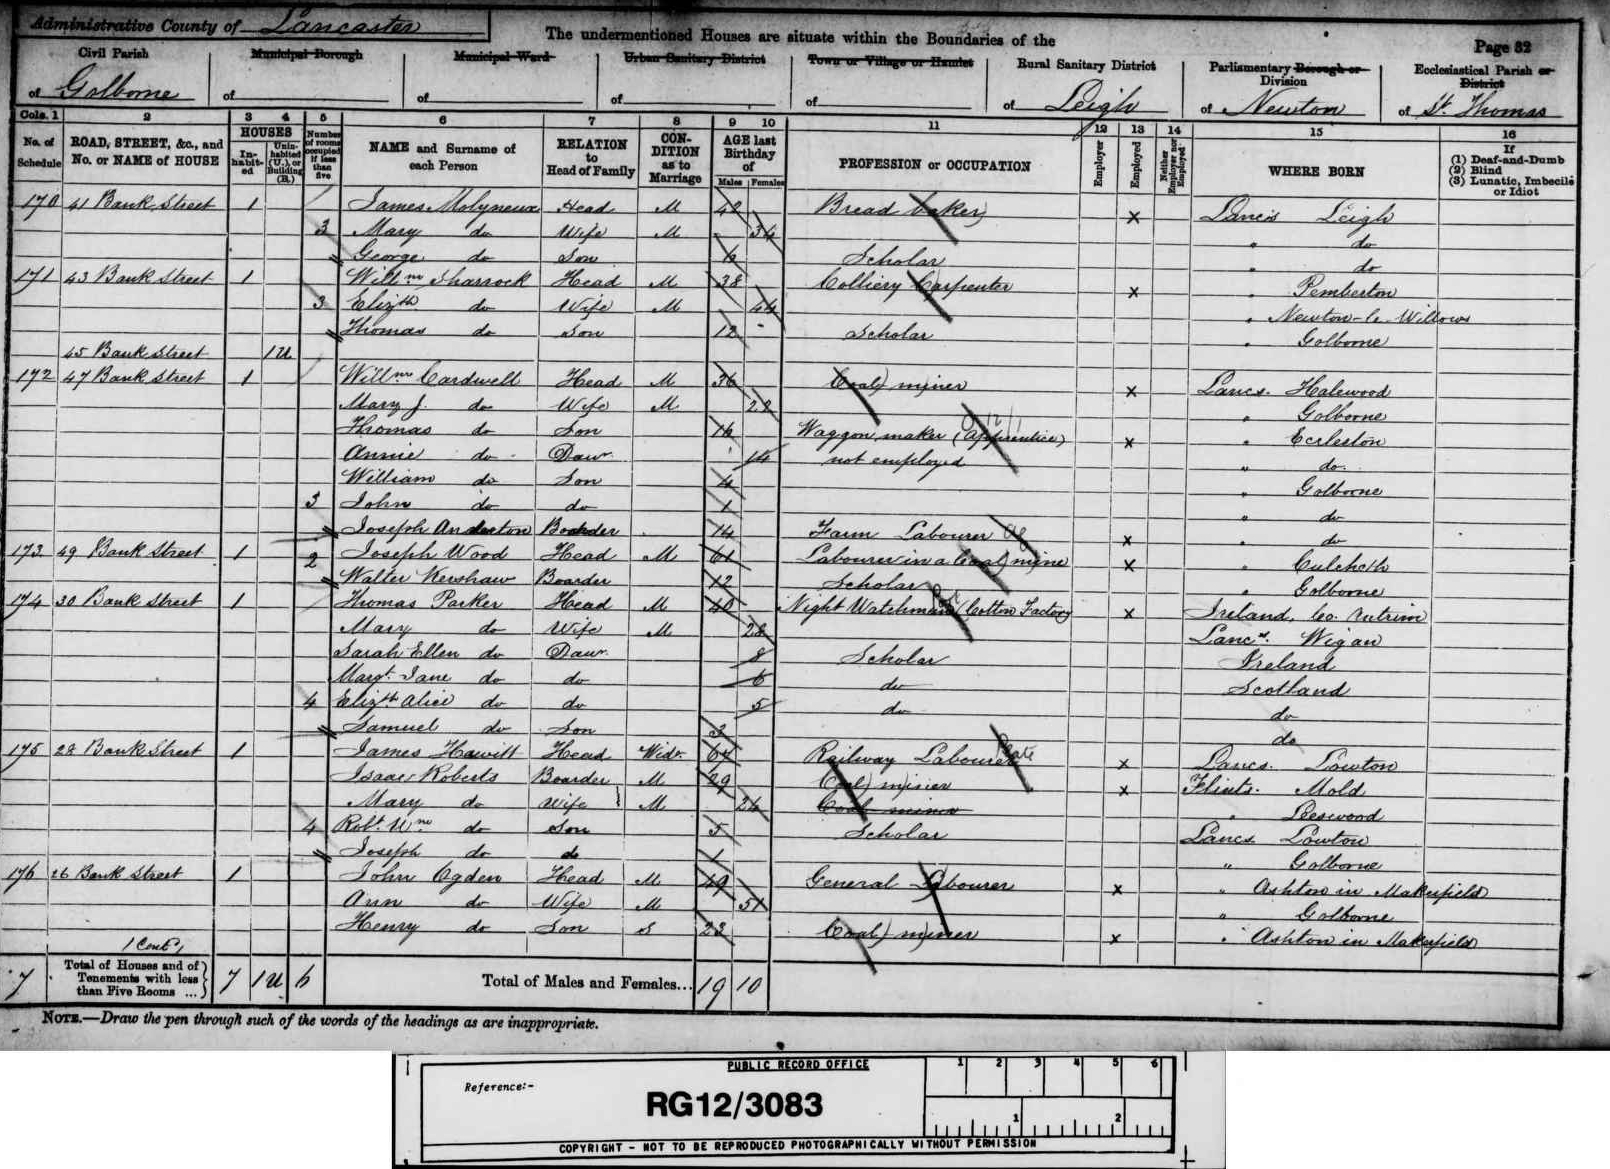 Administrative County of Lancaster
The undermentioned Houses are situate within the Boundaries of the
Page 32
Civil Parish Municipal Borough Municipal Ward Urban Sanitary District Town or Village or Hamlet Rural Sanitary District Parliamentary Borough or Division Ecclesiastical Parish or District
of Golborne of of of of of Leigh of Newton of St. Thomas
Cols. 1 2 3 4 5 6 7 8 9 10 11 12 13 14 15 16
No. of Schedule ROAD, STREET, &c., and No. or NAME of HOUSE HOUSES Inhabited Uninhabited (U.), or Building (B.) Number of rooms occupied if less than five NAME and Surname of each Person RELATION to Head of Family CONDITION as to Marriage AGE last Birthday of Males Females PROFESSION or OCCUPATION Employer Employed Neither Employer nor Employed WHERE BORN If (1) Deaf-and-Dumb (2) Blind (3) Lunatic, Imbecile or Idiot
170 41 Bank Street 1 James Molyneux Head M 42 Bread baker x Lancs Leigh
3 Mary do Wife M 34 " do
George do Son 6 Scholar " do
171 43 Bank Street 1 Willm Sharrock Head M 38 Colliery Carpenter x " Pemberton
3 Elizth do Wife M 44 " Newton-le-Willows
Thomas do Son 12 Scholar " Golborne
45 Bank Street 1U
172 47 Bank Street 1 Willm Cardwell Head M 36 Coal miner x Lancs. Halewood
Mary J. do Wife M 22 " Golborne
Thomas do Son 16 Waggon maker (Apprentice) x " Eccleston
Annie do Daur 14 not employed " do.
William do Son 4 " Golborne
3 John do do 1 " do
Joseph Anderton Boarder 14 Farm Labourer Ag x " do
173 49 Bank Street 1 2 Joseph Wood Head M 61 Labourer in a Coal mine x " Culcheth
Walter Kershaw Boarder 12 Scholar " Golborne
174 30 Bank Street 1 Thomas Parker Head M 40 Night Watchman (Cotton Factory) x Ireland, Co. Antrim
Mary do Wife M 28 Lancs. Wigan
Sarah Ellen do Daur 8 Scholar Ireland
Margt. Jane do do 6 do Scotland
4 Elizth Alice do do 5 do do
Samuel do Son 3 do
175 28 Bank Street 1 James Hewitt Head Widr. 64 Railway Labourer x Lancs. Lowton
Isaac Roberts Boarder M 29 Coal miner x Flints. Mold
Mary do Wife M 24 Coal miner " Leeswood
4 Robt. Wm do Son 5 Scholar Lancs Lowton
Joseph do do 1 " Golborne
176 26 Bank Street 1 John Ogden Head M 49 General Labourer x " Ashton in Makerfield
Ann do Wife M 51 " Golborne
Henry do Son S 23 Coal miner x " Ashton in Makerfield
7 Total of Houses and of Tenements with less than Five Rooms ... 7 1U 6 Total of Males and Females... 19 10
NOTE.—Draw the pen through such of the words of the headings as are inappropriate.
PUBLIC RECORD OFFICE 1 2 3 4 5 6
Reference:-
RG12/3083
1 2
COPYRIGHT - NOT TO BE REPRODUCED PHOTOGRAPHICALLY WITHOUT PERMISSION